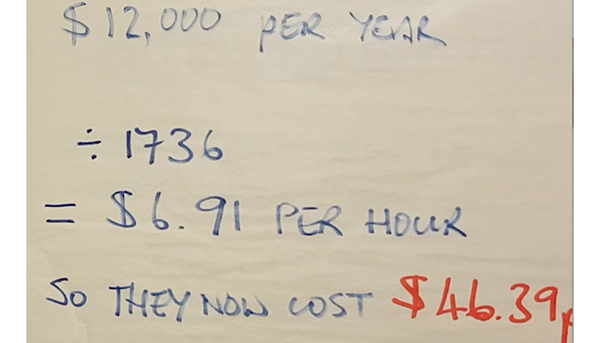 $12,000 PER YEAR
÷ 1736
= $6.91 PER HOUR
SO THEY NOW COST $46.39